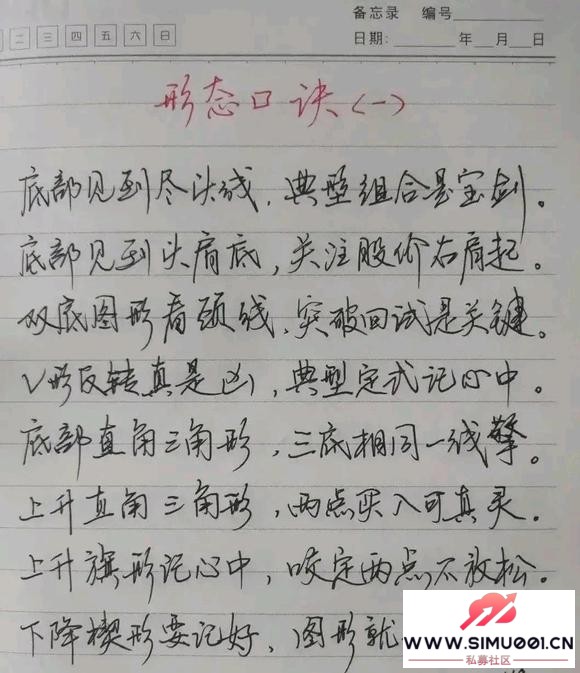 备忘录 编号
二 三 四 五 六 日
日期: 年 月 日
形态口诀(一)
底部见到尽头线，典型组合是宝剑。
底部见到头肩底，关注股价右肩起。
双底图形看颈线，突破回试是关键。
V形反转真是凶，典型定式记心中。
底部直角三角形，三底相同一线擎。
上升直角三角形，两点买入可真灵。
上升旗形记心中，咬定两点不放松。
下降楔形要记好，图形就
WWW.SIMU001.CN
私募社区